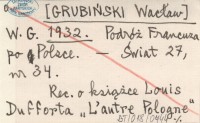 [GRUBIŃSKI Wacław]
W. G. 1932. Podróż Francuza
po Polsce. — Świat 27,
nr 34.
Rec. o książce Louis
Dufforta „L'autre Pologne"